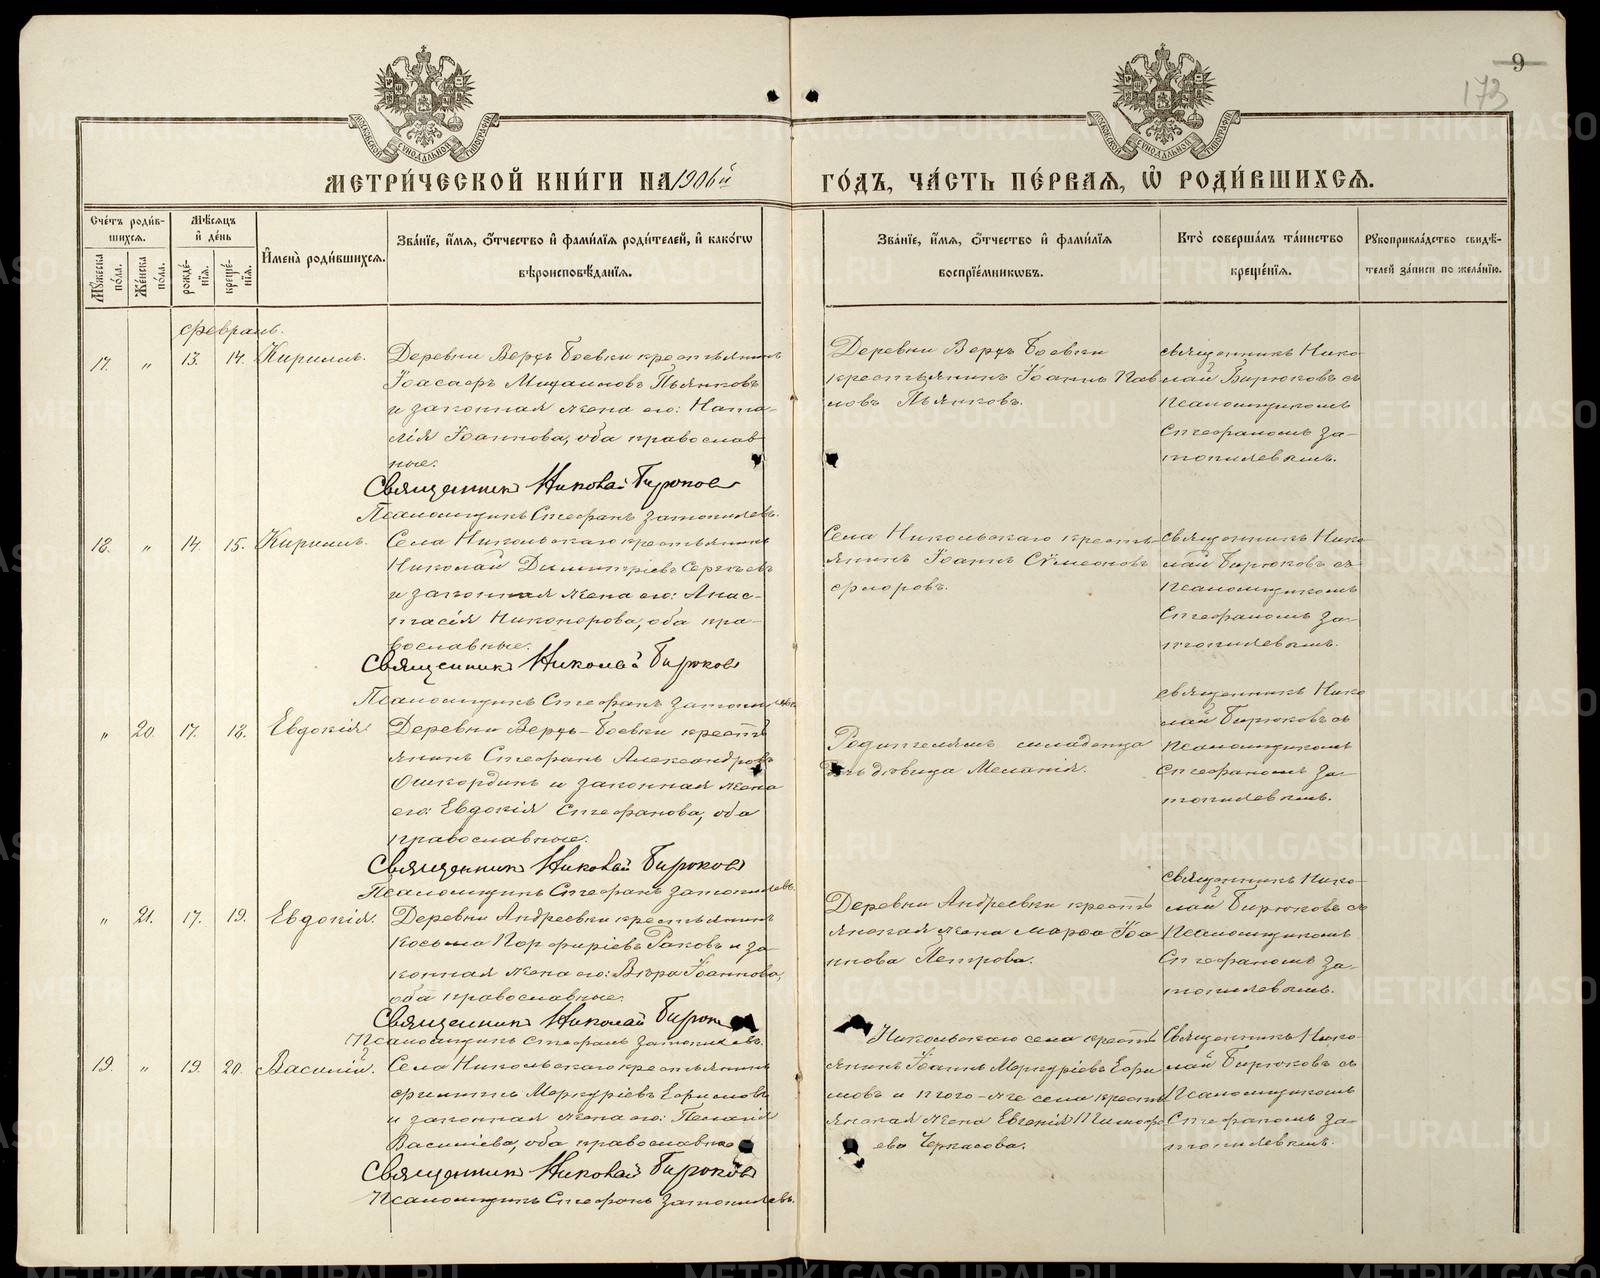 9
173
МОСКОВСКОЙ СѴНОДАЛЬНОЙ ТИПОГРАФІИ
МОСКОВСКОЙ СѴНОДАЛЬНОЙ ТИПОГРАФІИ
МЕТРИ́ЧЕСКОЙ КНИ́ГИ НА 1906й
ГО́ДЪ, ЧА́СТЬ ПЕ́РВАЯ, Ѡ҆ РОДИ́ВШИХСЯ.
Сче́тъ роди́в-
шихся.
Мѣ́сяцъ
и҆ де́нь
Мꙋ́жеска по́ла.
Же́нска по́ла.
рожде́нїя.
креще́нїя.
И҆мена̀ роди́вшихся.
Зва́нїе, и҆́мя, ѻ҆́тчество и҆ фами́лїя роди́телей, и҆ како́гѡ
вѣроисповѣ́данїя.
Зва́нїе, и҆́мя, ѻ҆́тчество и҆ фами́лїя
воспрїе́мникѡвъ.
Кто̀ соверша́лъ та́инство
креще́нїя.
Рꙋкоприкла́дство свидѣ́-
телей за́писи по жела́нїю.
Февраль.
17. " 13. 14. Кириллъ.
Деревни Верхъ Боевки крестьянинъ
Іоасафъ Михаиловъ Пьянковъ
и законная жена его: Ната-
лія Іоаннова, оба православ-
ные.
Священникъ Николай Бирюковъ
Псаломщикъ Стефанъ Затопляевъ.
Деревни Верхъ Боевки
крестьянинъ Іоаннъ Пав-
ловъ Пьянковъ.
Священникъ Нико-
лай Бирюковъ съ
псаломщикомъ
Стефаномъ За-
топляевымъ.
18. " 14. 15. Кириллъ.
Села Никольскаго крестьянинъ
Николай Димитріевъ Сергѣевъ
и законная жена его: Анас-
тасія Никонорова, оба пра-
вославные.
Священникъ Николай Бирюковъ
Псаломщикъ Стефанъ Затопляевъ
Села Никольскаго кресть-
янинъ Іоаннъ Сѵмеоновъ
Флоровъ.
Священникъ Нико-
лай Бирюковъ съ
псаломщикомъ
Стефаномъ За-
топляевымъ.
" 20. 17. 18. Евдокія
Деревни Верхъ-Боевки кресть
янинъ Стефанъ Александровъ
Ошкординъ и законная жена
его: Евдокія Стефанова, оба
православные.
Священникъ Николай Бирюковъ
Псаломщикъ Стефанъ Затопляевъ.
Родителямъ младенца
дѣвица Меланія.
Священникъ Нико
лай Бирюковъ съ
псаломщикомъ
Стефаномъ За-
топляевымъ.
" 21. 17. 19. Евдокія.
Деревни Андреевки крестьянинъ
Косьма Порфиріевъ Раковъ и за-
конная жена его: Вѣра Іоаннова,
оба православные.
Священникъ Николай Бирюк
Псаломщикъ Стефанъ Затопляевъ.
Деревни Андреевки кресть
янская жена Марфа Іоа
ннова Петрова.
Священникъ Нико-
лай Бирюковъ съ
псаломщикомъ
Стефаномъ За-
топляевымъ.
19. " 19. 20. Василій.
Села Никольскаго крестьянинъ
Филиппъ Меркуріевъ Ефимовъ
и законная жена его: Пелагія
Васильева, оба православные
Священникъ Николай Бирюковъ
Псаломщикъ Стефанъ Затопляевъ.
Никольскаго села кресть
янинъ Іоаннъ Меркуріевъ Ефи
мовъ и того-же села кресть
янская жена Евгенія Тимофе
ева Черкасова.
Священникъ Нико-
лай Бирюковъ съ
псаломщикомъ
Стефаномъ За-
топляевымъ.
METRIKI.GASO-URAL.RU